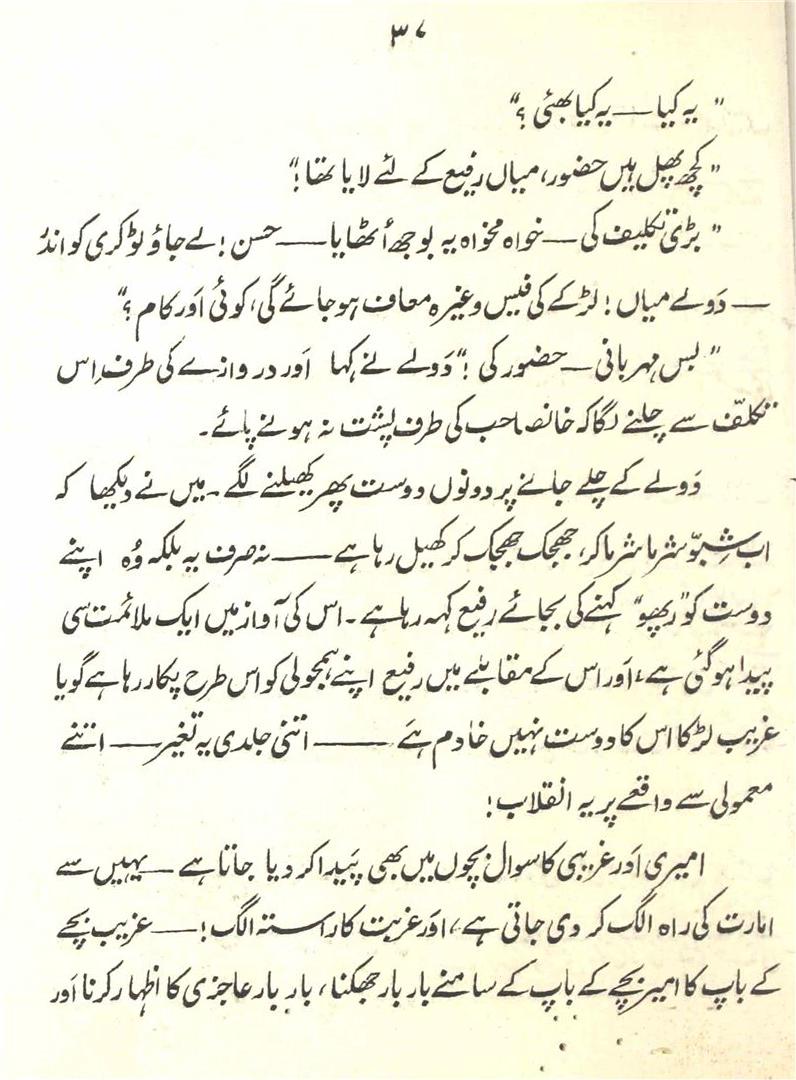 ۳۷
" یہ کیا — یہ کیا بھئی ؟"
" کچھ پھل ہیں حضور، میاں رفیع کے لئے لایا تھا!"
" بڑی تکلیف کی — خواہ مخواہ یہ بوجھ اُٹھایا — حسن! لے جاؤ ٹوکری کو اندر
— دَولے میاں! لڑکے کی فیس وغیرہ معاف ہو جائے گی، کوئی اَور کام ؟"
" بس مہربانی — حضور کی!" دَولے نے کہا اَور دروازے کی طرف اِس
تکلّف سے چلنے لگا کہ خانصاحب کی طرف پشت نہ ہونے پائے۔
دَولے کے چلے جانے پر دونوں دوست پھر کھیلنے لگے۔ میں نے دیکھا کہ
اب شِبّو شرما شرما کر، جھجک جھجک کر کھیل رہا ہے — نہ صرف یہ بلکہ وُہ اپنے
دوست کو "رپھو" کہنے کی بجائے رفیع کہہ رہا ہے۔ اس کی آواز میں ایک ملائمت سی
پیدا ہو گئی ہے، اَور اس کے مقابلے میں رفیع اپنے ہمجولی کو اس طرح پکار رہا ہے گویا
غریب لڑکا اس کا دوست نہیں خادم ہے — اتنی جلدی یہ تغیر — اتنے
معمولی سے واقعے پر یہ انقلاب!
امیری اَور غریبی کا سوال بچوں میں بھی پَیدا کر دیا جاتا ہے — یہیں سے
امارت کی راہ الگ کر دی جاتی ہے، اَور غربت کا راستہ الگ! — غریب بچے
کے باپ کا امیر بچے کے باپ کے سامنے بار بار جھکنا، بار بار عاجزی کا اظہار کرنا اَور